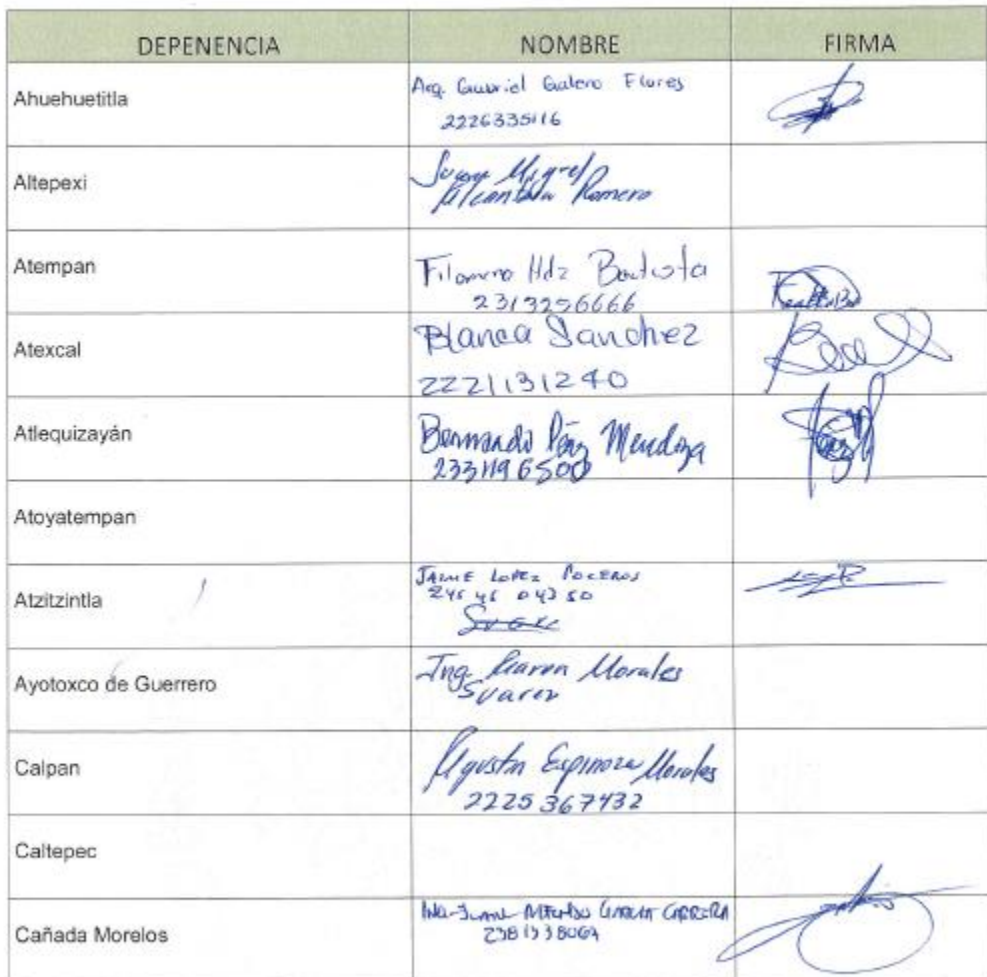 DEPENENCIA NOMBRE FIRMA
Ahuehuetitla
Arq. Gabriel Galero Flores
2226335116
Altepexi
Juan Miguel
Alcantara Romero
Atempan
Filomeno Hdz Bautista
2313256666
Atexcal
Blanca Sanchez
2221131240
Atlequizayán
Bernardo Pérez Mendoza
2331196500
Atoyatempan
Atzitzintla
JAIME LOPEZ
245 45 04350
Ayotoxco de Guerrero
Ing. Karen Morales
Suarez
Calpan
Agustin Espinoza Morales
2225367432
Caltepec
Cañada Morelos
ING. JUAN GARCIA CARRERA